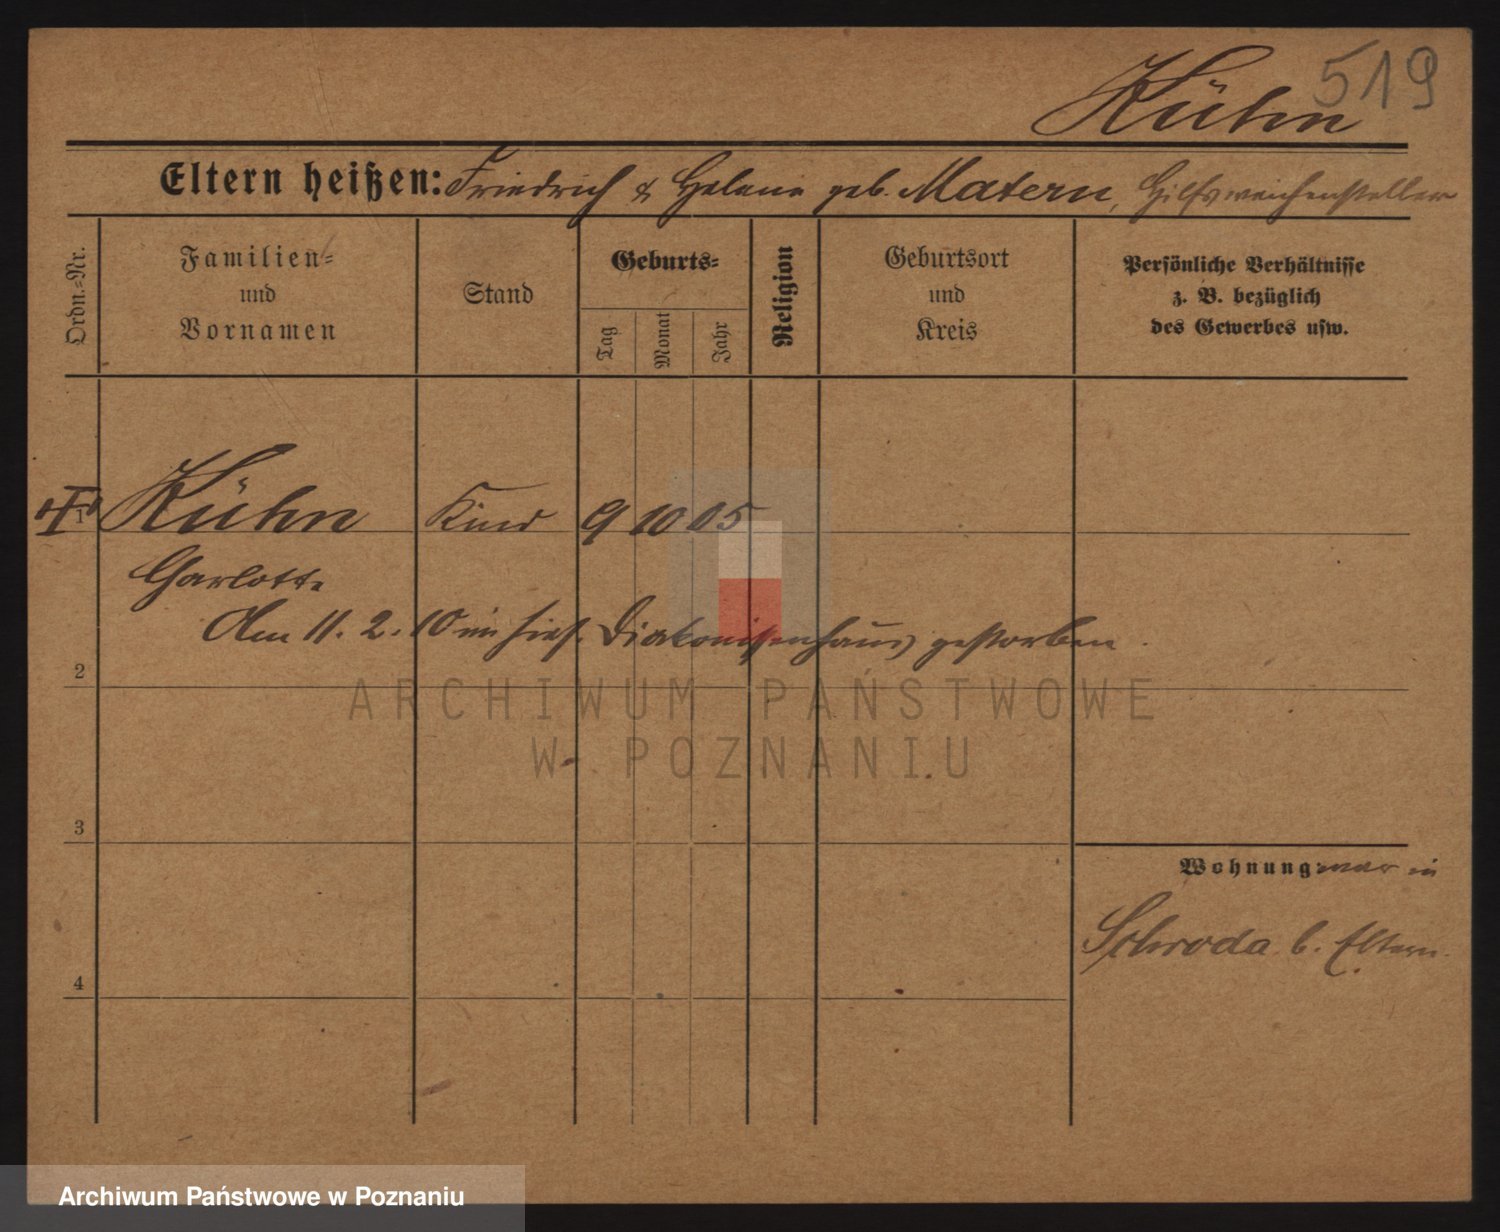 519
Kühn
Eltern heißen: Friedrich & Helene geb. Matern, Hilfsweichensteller
Ordn.-Nr.
Familien-
und
Vornamen
Stand
Geburts-
Tag
Monat
Jahr
Religion
Geburtsort
und
Kreis
Persönliche Verhältnisse
z. B. bezüglich
des Gewerbes usw.
1 Kühn Kind 9 10 05
Charlotte
Am 11. 2. 10 im hies. Diakonissenhaus gestorben.
2
ARCHIWUM PAŃSTWOWE
W POZNANIU
3
Wohnung war in
Schroda b. Eltern.
4
Archiwum Państwowe w Poznaniu